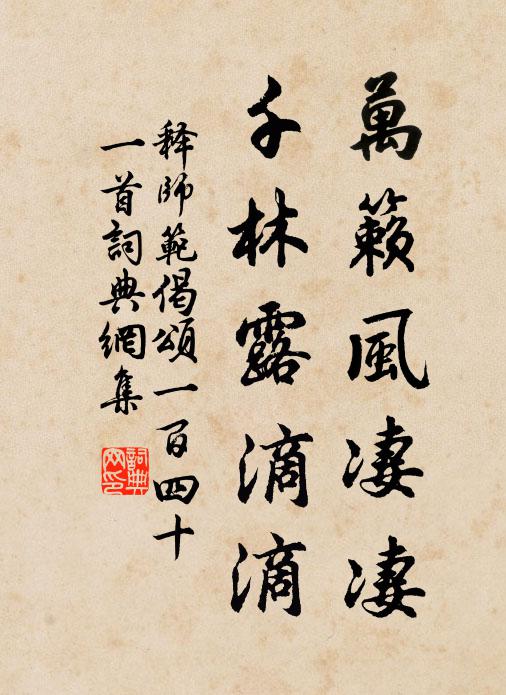 萬籟風淒淒
千林露滴滴
释師範偈頌一百四十
一首詞典網集
詞典
网印